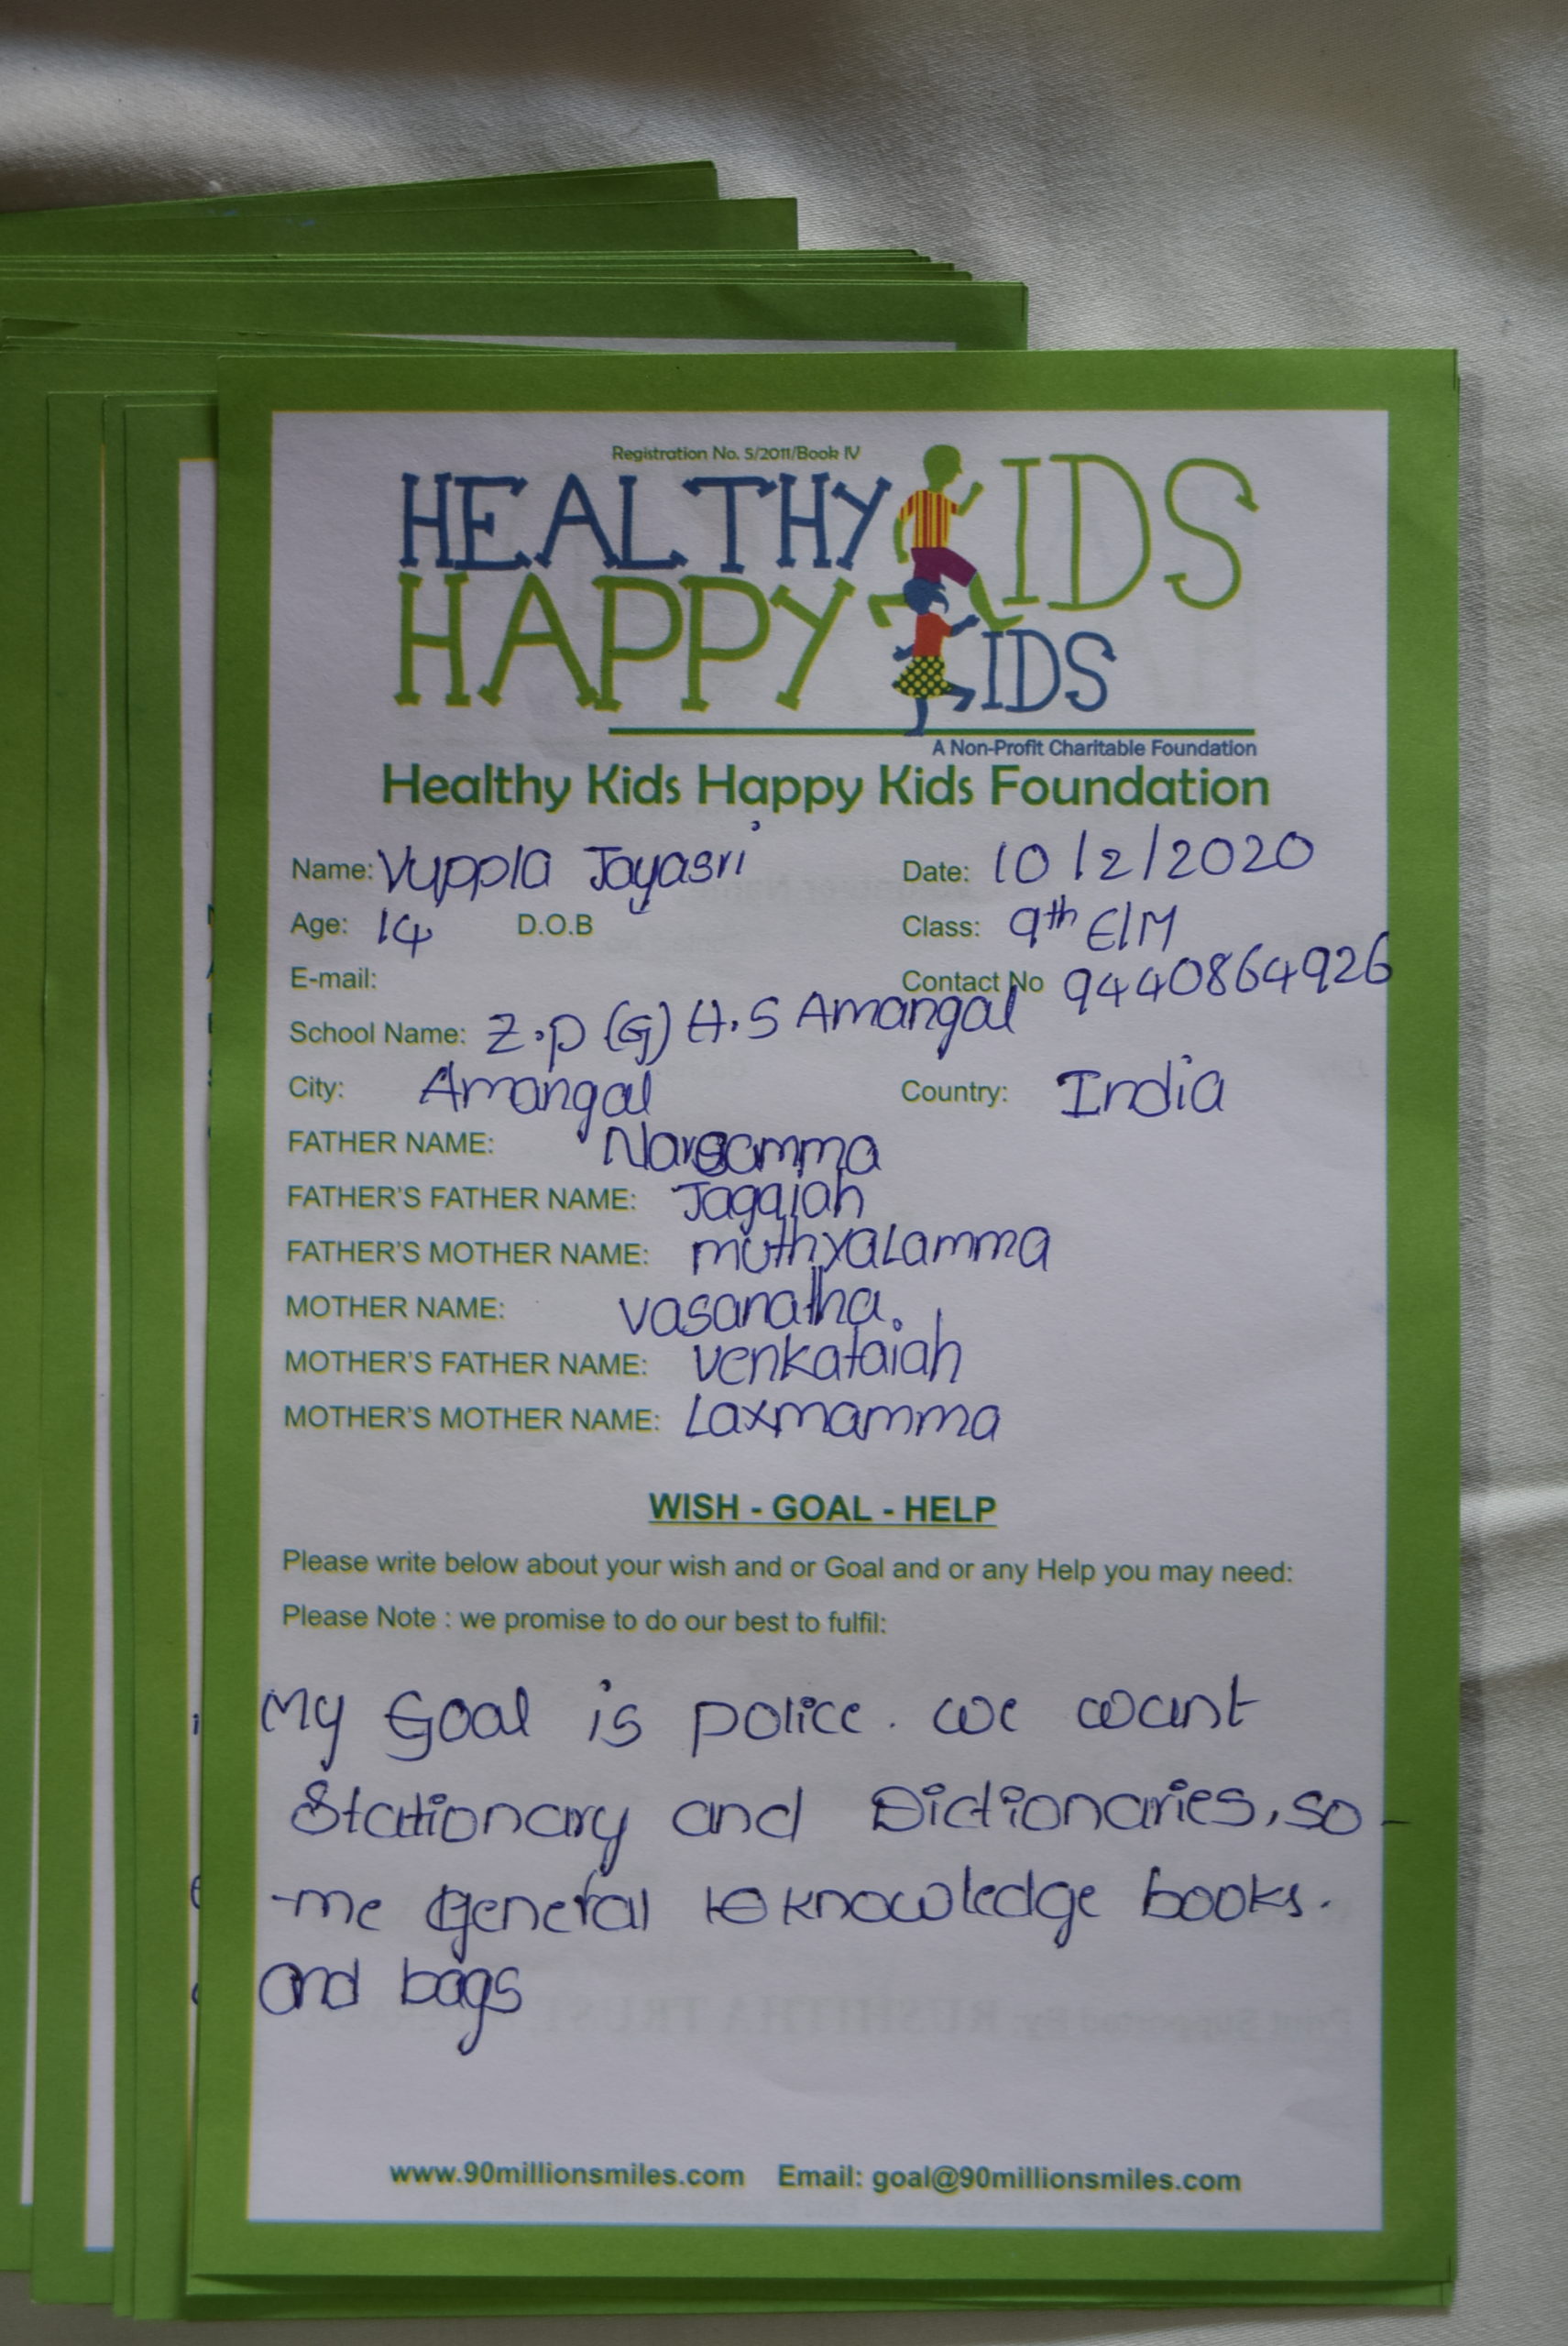 Registration No. 5/2011/Book IV
HEALTHY KIDS
HAPPY KIDS
A Non-Profit Charitable Foundation
Healthy Kids Happy Kids Foundation
Name: Vuppla Jayasri Date: 10/2/2020
Age: 14 D.O.B Class: 9th E/M
E-mail: Contact No 9440864926
School Name: Z.P (G) H.S Amangal
City: Amangal Country: India
FATHER NAME:
FATHER'S FATHER NAME: Jagaiah
FATHER'S MOTHER NAME: muthyaLamma
MOTHER NAME: vasanatha.
MOTHER'S FATHER NAME: venkataiah
MOTHER'S MOTHER NAME: Laxmamma
WISH - GOAL - HELP
Please write below about your wish and or Goal and or any Help you may need:
Please Note : we promise to do our best to fulfil:
My Goal is police. we want
Stationary and Dictionaries, so-
-me general knowledge books.
and bags
www.90millionsmiles.com Email: goal@90millionsmiles.com